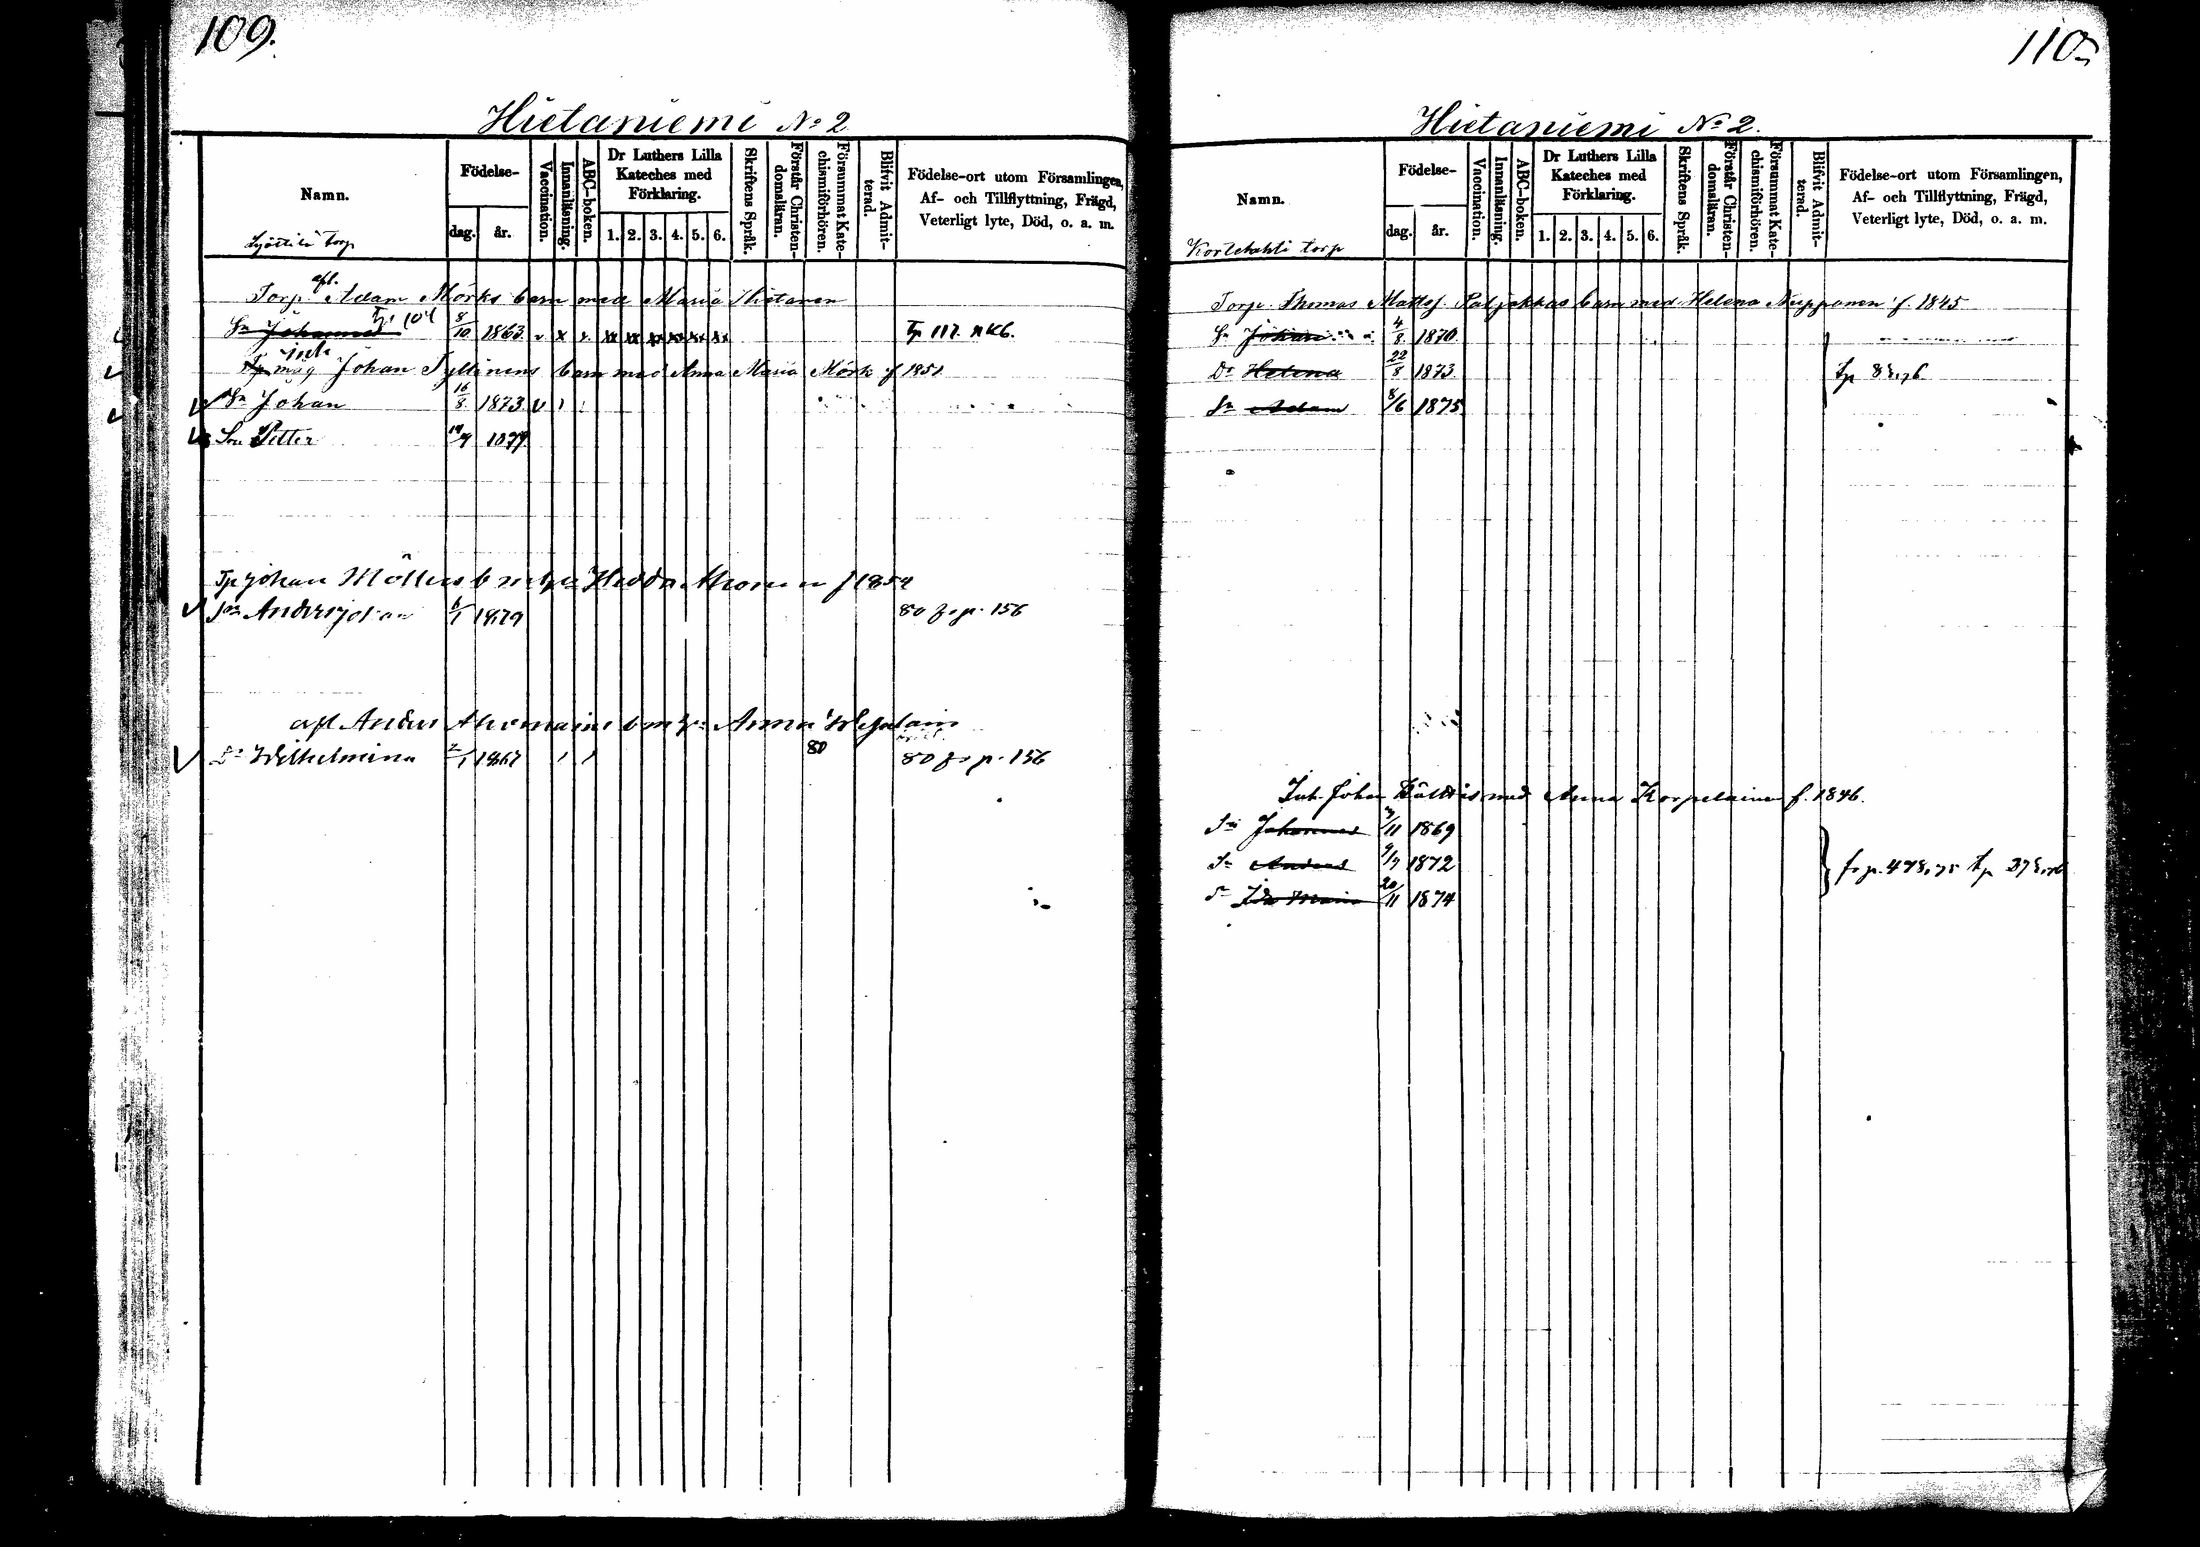 109.
Hietaniemi No 2
Namn.
Födelse-
dag.
år.
Vaccination.
Innanläsning.
ABC-boken.
Dr Luthers Lilla
Kateches med
Förklaring.
1. 2. 3. 4. 5. 6.
Skriftens Språk.
Förstår Christen-
domsläran.
Försummat Kate-
chismiförhören.
Blifvit Admit-
terad.
Födelse-ort utom Församlingen,
Af- och Tillflyttning, Frägd,
Veterligt lyte, Död, o. a. m.
torp
afl.
Torp. Adam Mörks barn med Maria Hietanen
Sn Johannes 8/10 1863 tp 117
inh
måg Johan Tyllinens barn med Anna Maria Mörk f 1851
Sn Johan 16/8 1873
Son Petter 1879
Tp Johan Möllers b m Hedda Ahonen f 1854
Son Anders Johan 6/1 1879 80 fr p. 156
afl Anders b m Anna
Dr Wilhelmina 2/1 1867 80 80 fr p. 156
110
Hietaniemi No 2.
Namn.
Födelse-
dag.
år.
Vaccination.
Innanläsning.
ABC-boken.
Dr Luthers Lilla
Kateches med
Förklaring.
1. 2. 3. 4. 5. 6.
Skriftens Språk.
Förstår Christen-
domsläran.
Försummat Kate-
chismiförhören.
Blifvit Admit-
terad.
Födelse-ort utom Församlingen,
Af- och Tillflyttning, Frägd,
Veterligt lyte, Död, o. a. m.
Kortelahti torp
Torp. Thomas Mattsf. Paljakkas barn med Helena Nuppanen f. 1845
Sn Johan 4/8 1870
Dr Helena 22/8 1873
Sn Adam 8/6 1875
Inh. Johan med Anna Korpelainen f. 1846.
Sn Johannes 1869
Sn Anders 9/7 1872 fr p. 478,75
Ida Maria 20/11 1874